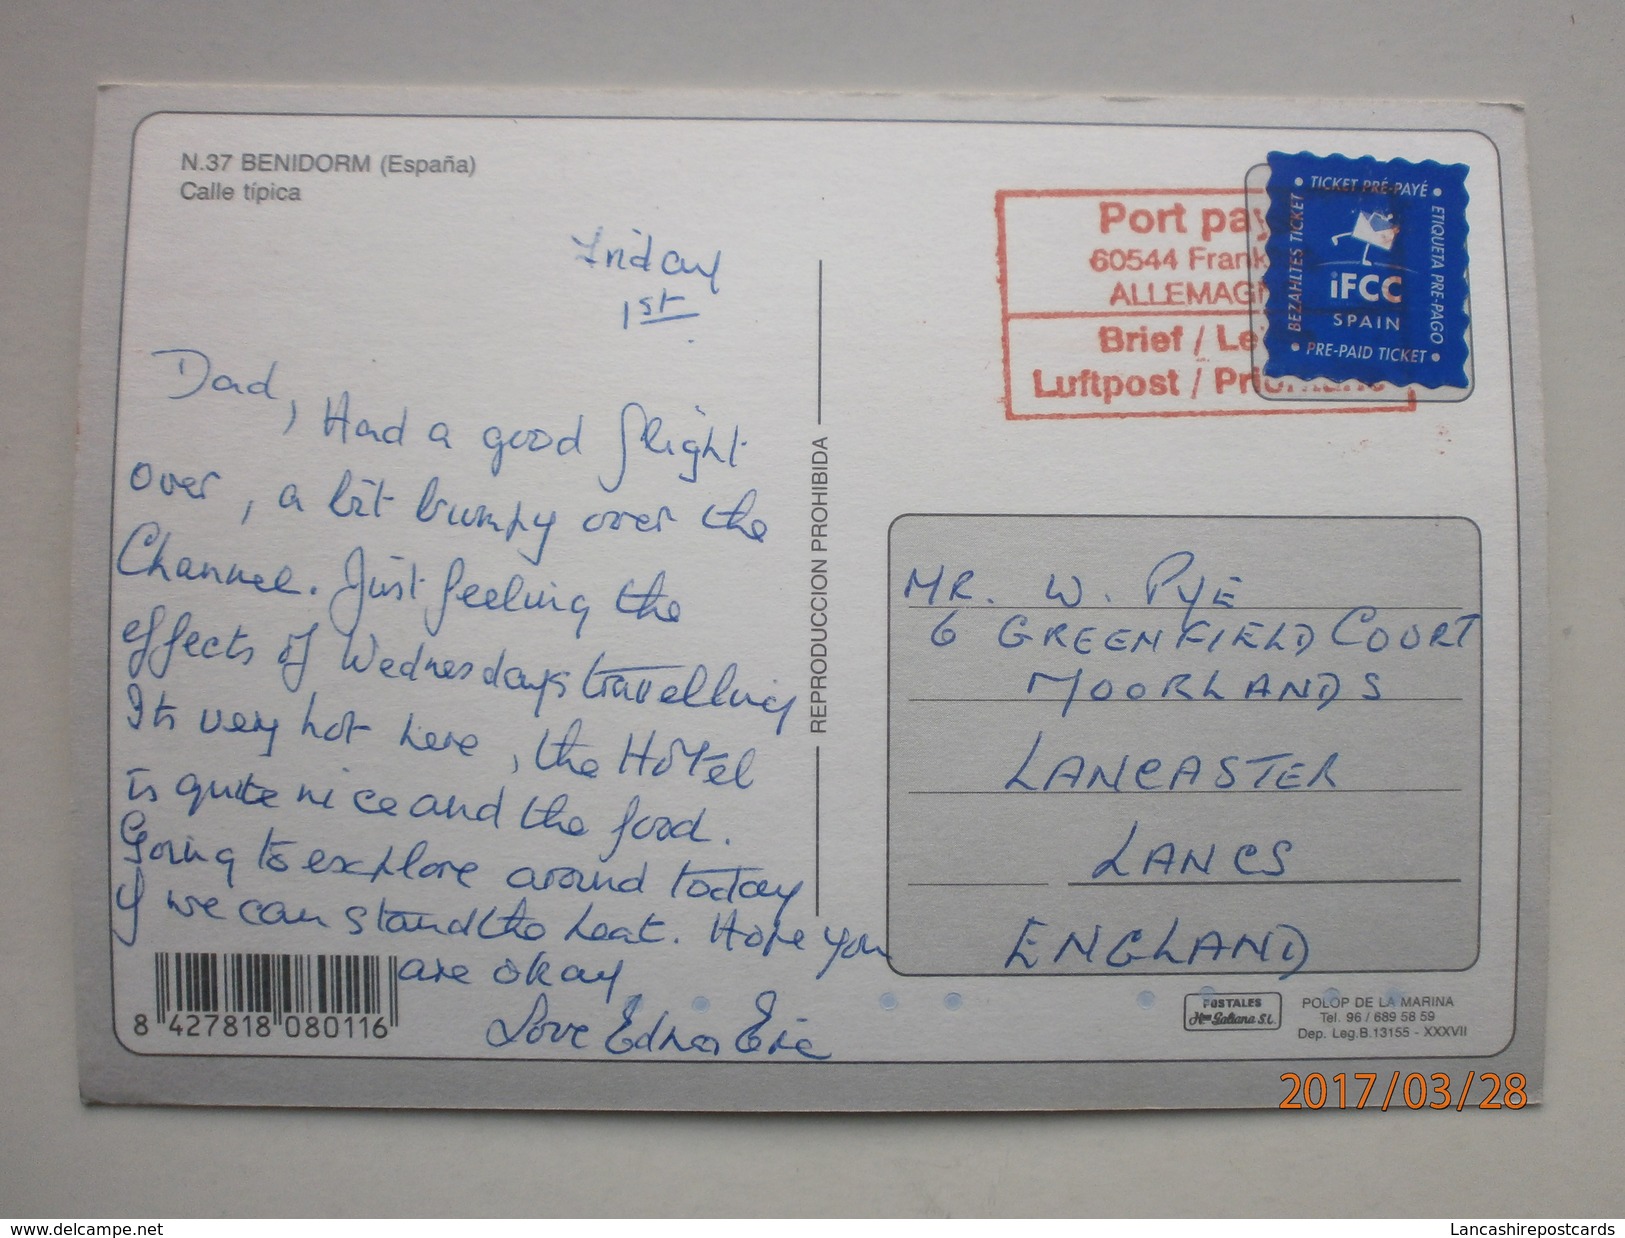 N.37 BENIDORM (España)
Calle típica
Friday
1st
Dad, Had a good flight
over, a bit bumpy over the
Channel. Just feeling the
effects of Wednesdays travelling
Its very hot here, the Hotel
is quite nice and the food.
Going to explore around today
if we can stand the heat. Hope you
are okay
Love Edna Eric
8 427818 080116
REPRODUCCION PROHIBIDA
Port pay
60544 Frank
ALLEMAG
Brief / Le
Luftpost / Prioritaire
• TICKET PRÉ-PAYÉ •
ETIQUETA PRE-PAGO
BEZAHLTES TICKET
iFCC
SPAIN
• PRE-PAID TICKET •
MR. W. PYE
6 GREENFIELD COURT
MOORLANDS
LANCASTER
LANCS
ENGLAND
POSTALES
Hnos Galiana S.L.
POLOP DE LA MARINA
Tel. 96 / 689 58 59
Dep. Leg.B.13155 - XXXVII
2017/03/28
www.delcampe.net
Lancashirepostcards